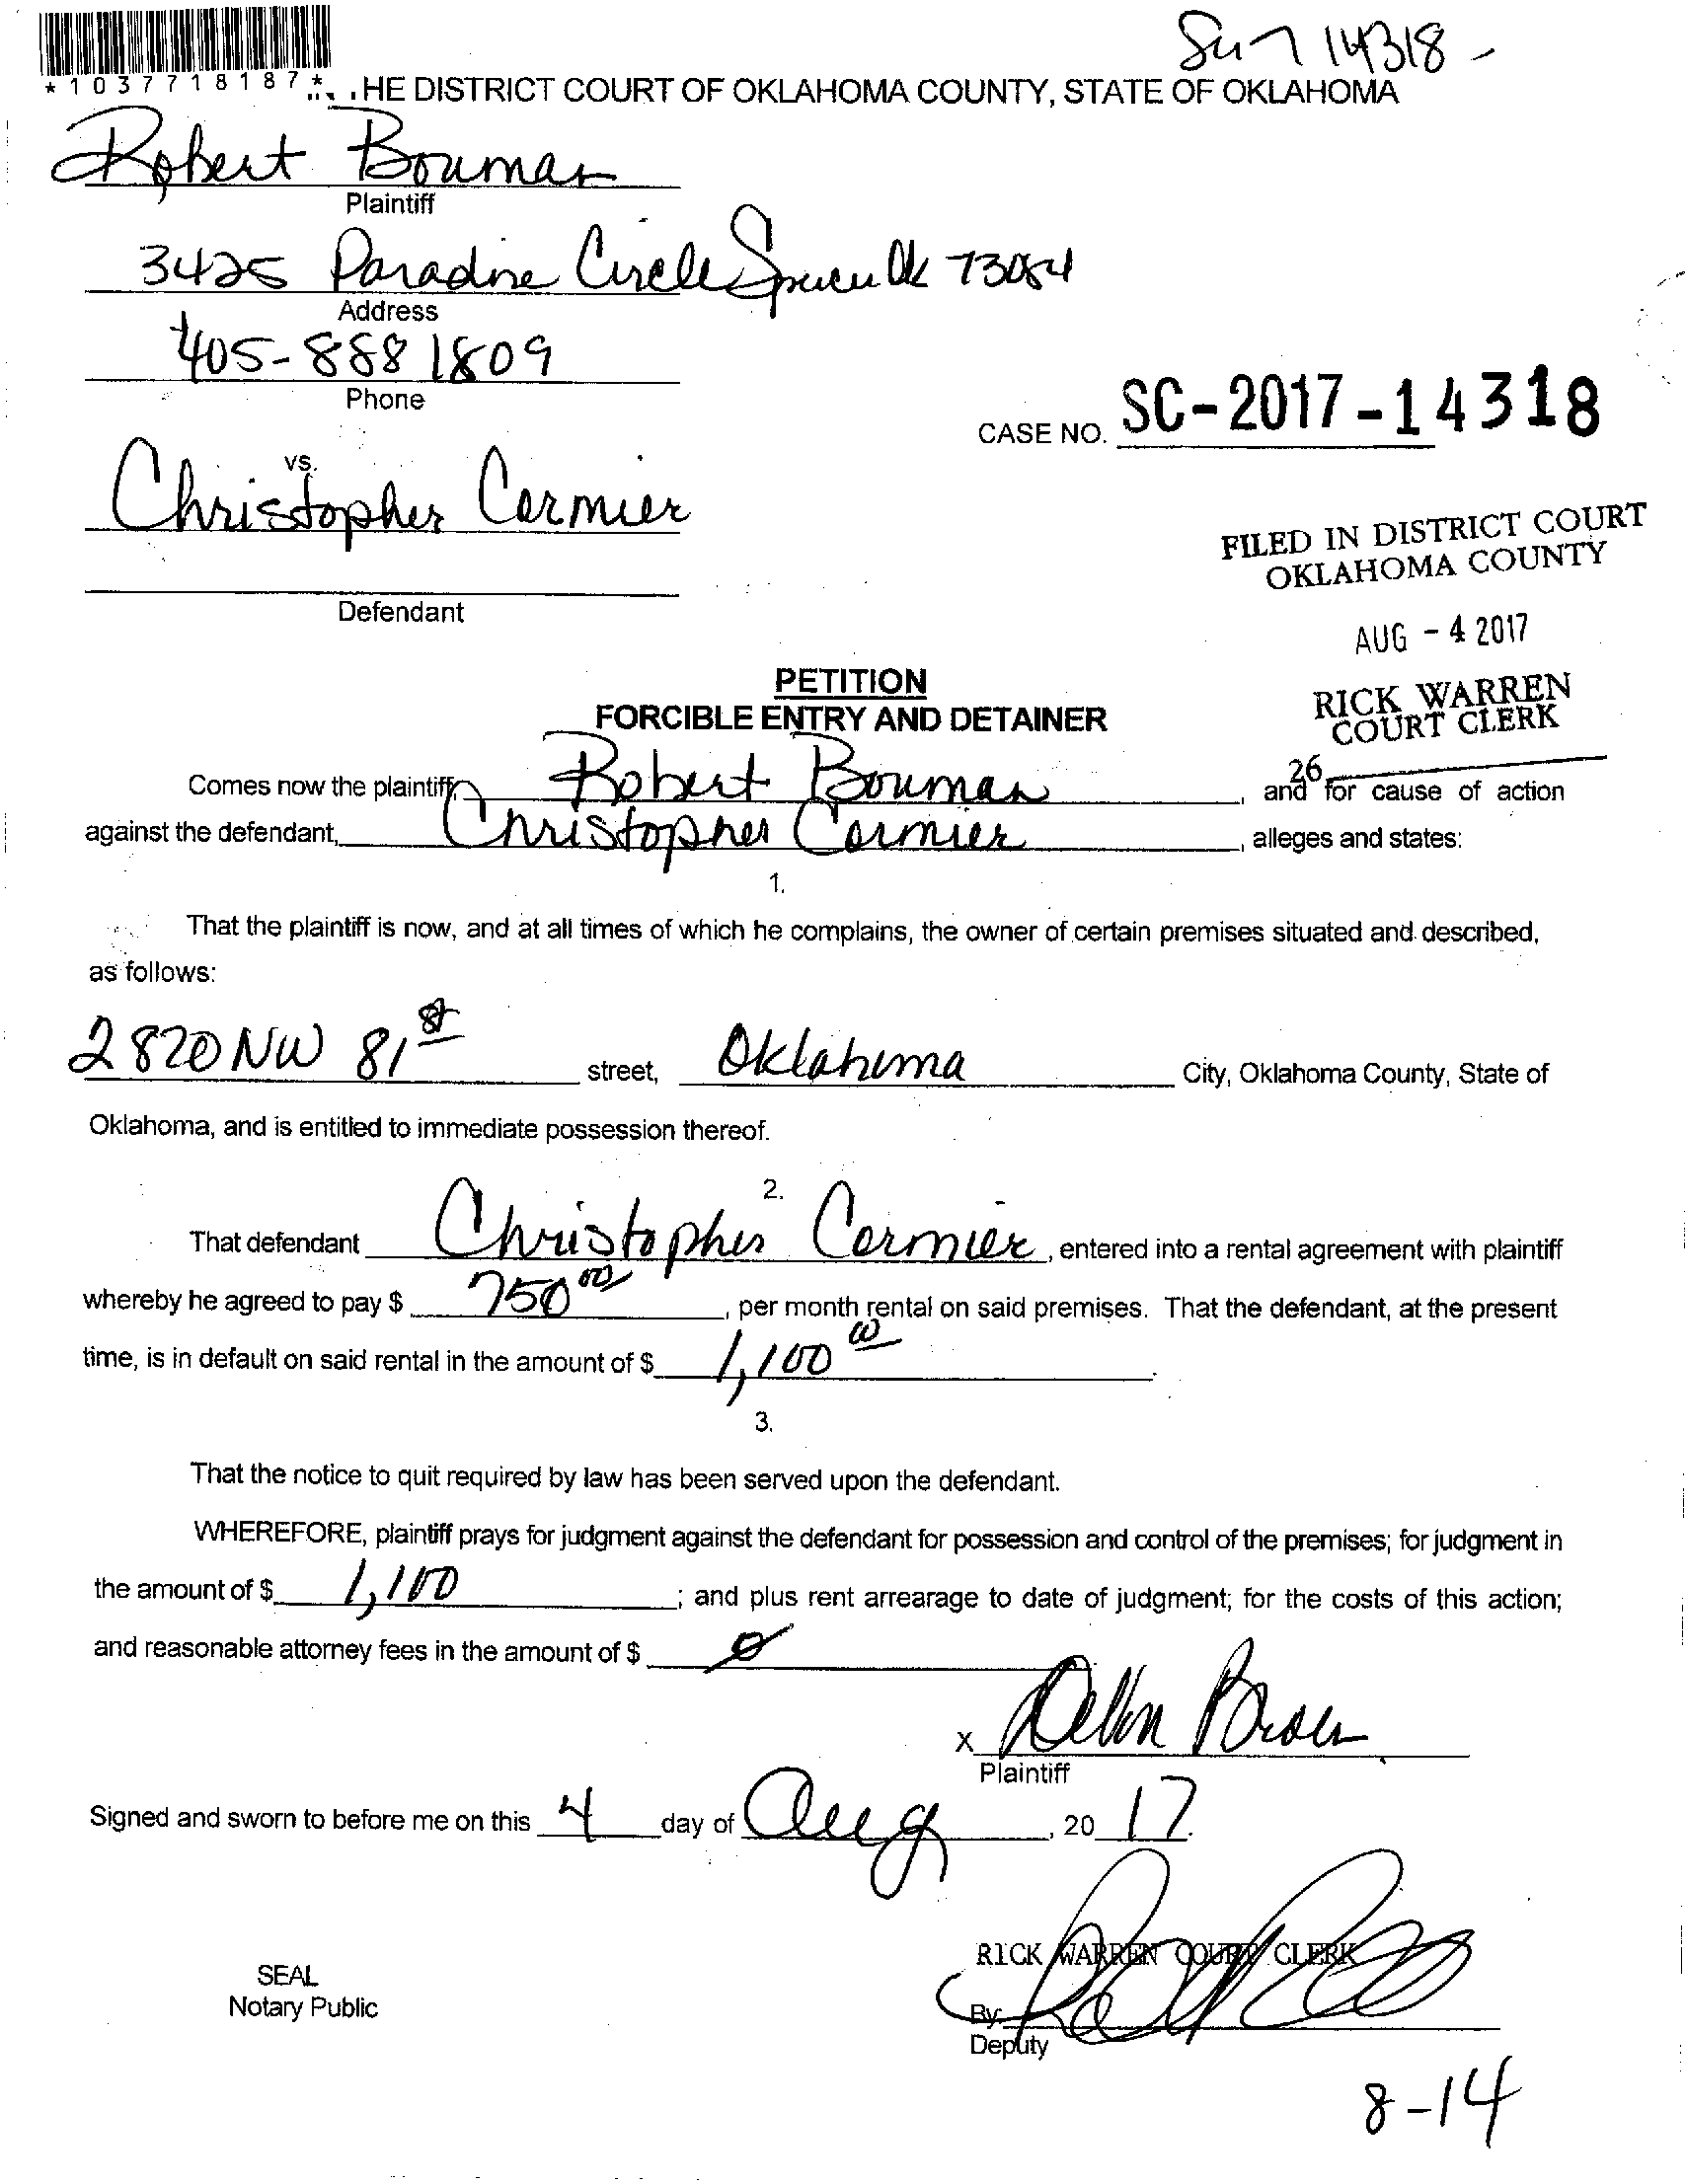 * 1 0 3 7 7 1 8 1 8 7 *
14318 -
HE DISTRICT COURT OF OKLAHOMA COUNTY, STATE OF OKLAHOMA
Robert Bouman
Plaintiff
3425 Paradise Circle Ok 73084
Address
405-888 1809
Phone
CASE NO. SC-2017-14318
vs.
Christopher Cormier
FILED IN DISTRICT COURT
OKLAHOMA COUNTY
Defendant
AUG - 4 2017
PETITION
FORCIBLE ENTRY AND DETAINER
RICK WARREN
COURT CLERK
26
Comes now the plaintiff, Robert Bouman, and for cause of action
against the defendant, Christopher Cormier, alleges and states:
1.
That the plaintiff is now, and at all times of which he complains, the owner of certain premises situated and described,
as follows:
2820 NW 81st street, Oklahoma City, Oklahoma County, State of
Oklahoma, and is entitled to immediate possession thereof.
2.
That defendant Christopher Cormier, entered into a rental agreement with plaintiff
whereby he agreed to pay $ 750 00, per month rental on said premises. That the defendant, at the present
time, is in default on said rental in the amount of $ 1,100 00.
3.
That the notice to quit required by law has been served upon the defendant.
WHEREFORE, plaintiff prays for judgment against the defendant for possession and control of the premises; for judgment in
the amount of $ 1,100; and plus rent arrearage to date of judgment; for the costs of this action;
and reasonable attorney fees in the amount of $ 0
X
Plaintiff
Signed and sworn to before me on this 4 day of Aug, 20 17.
RICK WARREN COURT CLERK
SEAL
Notary Public
By:
Deputy
8-14